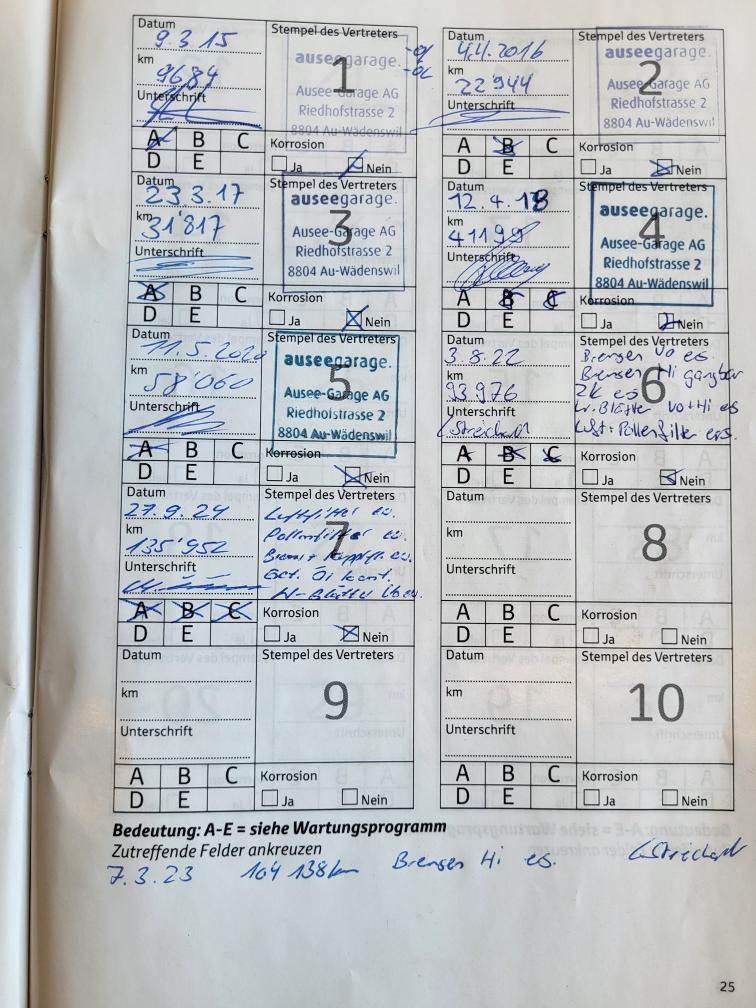 Datum
9.3.15
km
9684
Unterschrift
Stempel des Vertreters
1
auseegarage.
Ausee-Garage AG
Riedhofstrasse 2
8804 Au-Wädenswil
A B C
D E
Korrosion
Ja Nein
Datum
4.4.2016
km
22'944
Unterschrift
Stempel des Vertreters
2
auseegarage.
Ausee-Garage AG
Riedhofstrasse 2
8804 Au-Wädenswil
A B C
D E
Korrosion
Ja Nein
Datum
23.3.17
km
31'817
Unterschrift
Stempel des Vertreters
3
auseegarage.
Ausee-Garage AG
Riedhofstrasse 2
8804 Au-Wädenswil
A B C
D E
Korrosion
Ja Nein
Datum
12.4.18
km
41199
Unterschrift
Stempel des Vertreters
4
auseegarage.
Ausee-Garage AG
Riedhofstrasse 2
8804 Au-Wädenswil
A B C
D E
Korrosion
Ja Nein
Datum
11.5.2020
km
58'060
Unterschrift
Stempel des Vertreters
5
auseegarage.
Ausee-Garage AG
Riedhofstrasse 2
8804 Au-Wädenswil
A B C
D E
Korrosion
Ja Nein
Datum
3.8.22
km
93976
Unterschrift
Stempel des Vertreters
6
Bremsen Vo es.
Bremsen Hi gangbar
ZK es
W.Blätter Vo+Hi es
Luft+Pollenfilter ers.
A B C
D E
Korrosion
Ja Nein
Datum
27.9.24
km
135'952
Unterschrift
Stempel des Vertreters
7
Luftfilter
Pollenfilter
Öl
W-Blätter
A B C
D E
Korrosion
Ja Nein
Datum
km
Unterschrift
Stempel des Vertreters
8
A B C
D E
Korrosion
Ja Nein
Datum
km
Unterschrift
Stempel des Vertreters
9
A B C
D E
Korrosion
Ja Nein
Datum
km
Unterschrift
Stempel des Vertreters
10
A B C
D E
Korrosion
Ja Nein
Bedeutung: A-E = siehe Wartungsprogramm
Zutreffende Felder ankreuzen
7.3.23 104 138km Bremsen Hi es.
25